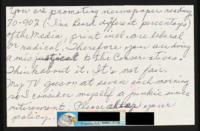 You are promoting newspaper reading
70-90% (I've heard different percentages)
of the Media, print well, are liberal
or radical. Therefore your are doing
a misjustical to the Conservatives.
Think about it. It's not fair.
My TV goes on at seven each morning
now I consider myself a junkie make
retirement. Please your
policy.